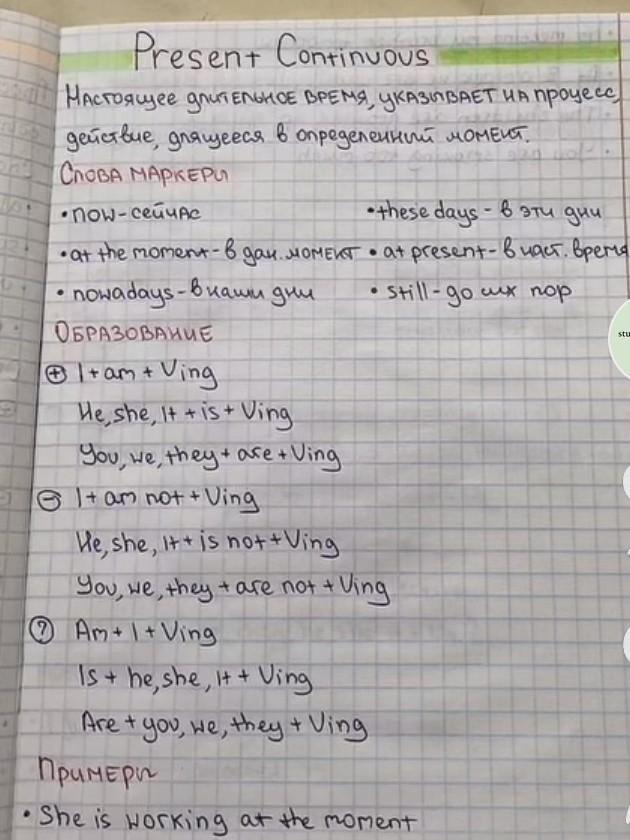 Present Continuous
Настоящее длительное время, указывает на процесс,
действие, длящееся в определенный момент.
Слова маркеры
• now - сейчас • these days - в эти дни
• at the moment - в дан. момент • at present - в наст. время
• nowadays - в наши дни • still - до сих пор
Образование
+ I + am + Ving
He, she, it + is + Ving
You, we, they + are + Ving
- I + am not + Ving
He, she, it + is not + Ving
You, we, they + are not + Ving
? Am + I + Ving
Is + he, she, it + Ving
Are + you, we, they + Ving
Примеры
• She is working at the moment
stu